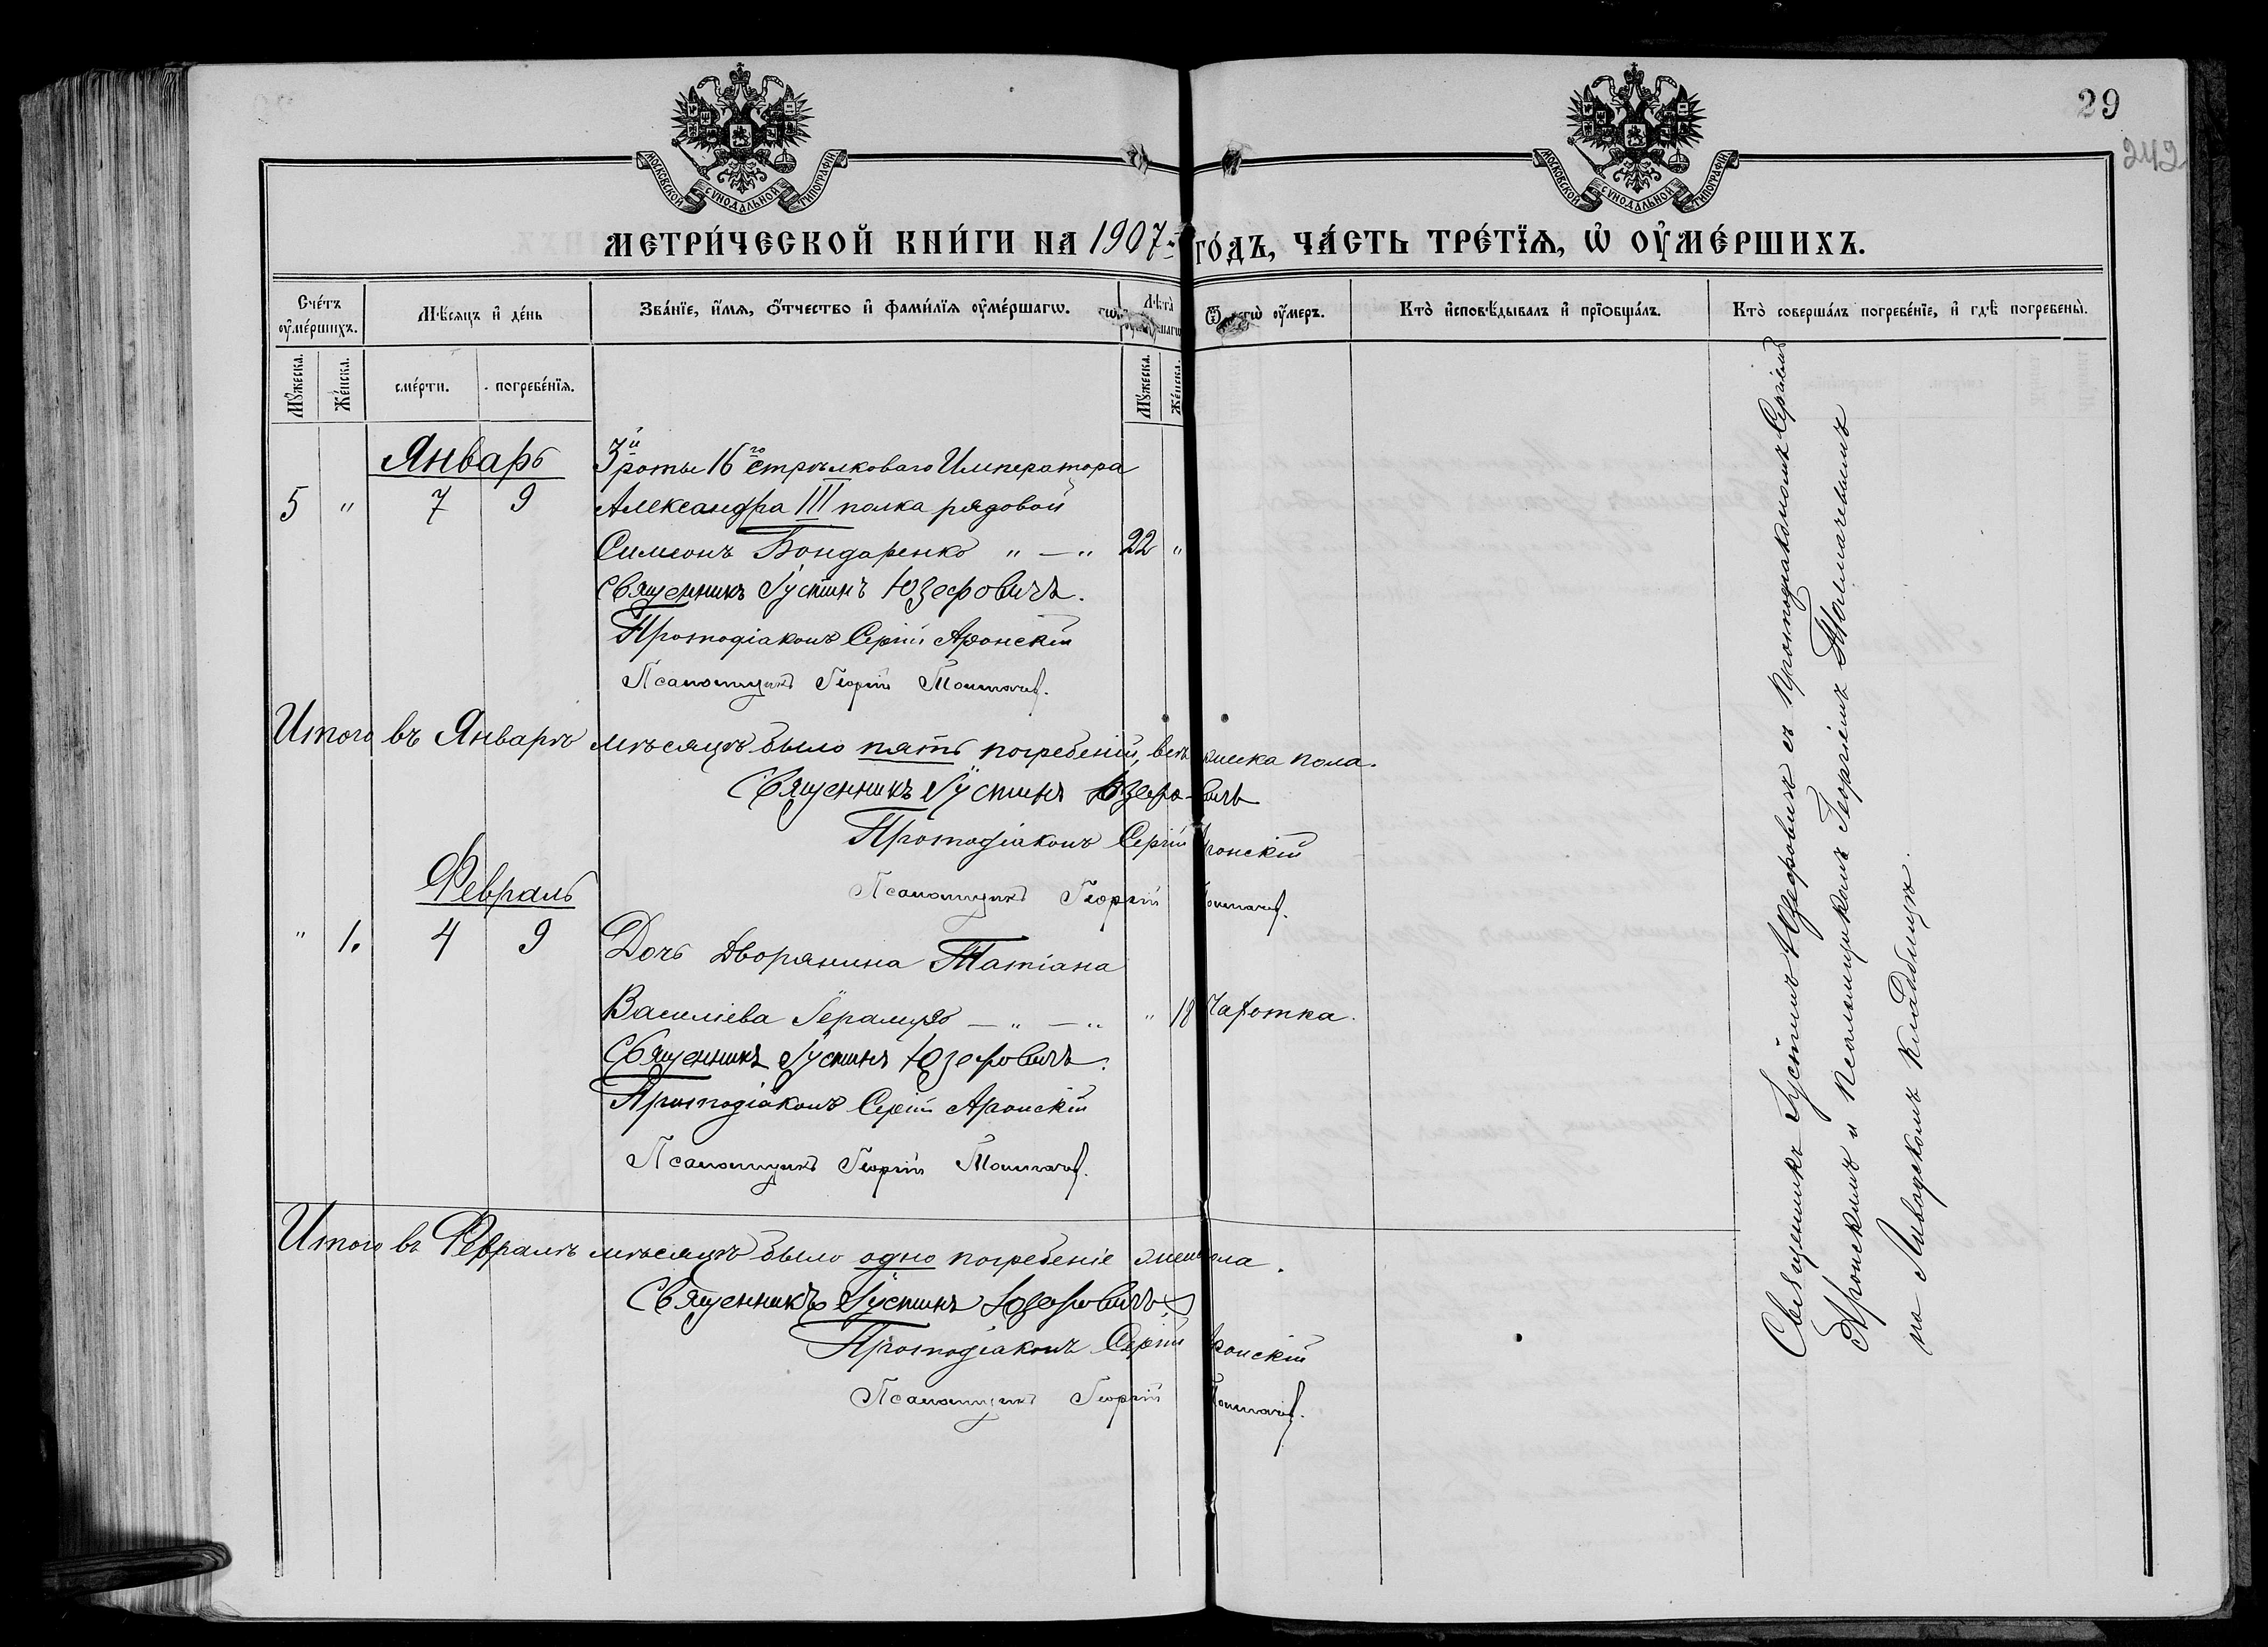 29
242
МОСКОВСКОЙ СѴНОДАЛЬНОЙ ТИПОГРАФІИ
МОСКОВСКОЙ СѴНОДАЛЬНОЙ ТИПОГРАФІИ
МЕТРИ́ЧЕСКОЙ КНИ́ГИ НА 1907 й ГО́ДЪ, ЧА́СТЬ ТРЕ́ТЇѦ, Ѡ҆ ОУ҆МЕ́РШИХЪ.
Сче́тъ оу҆ме́ршихъ.
Мѣ́сяцъ и҆ де́нь
Зва́нїе, и҆́мѧ, ѻ҆́тчество и҆ фами́лїѧ оу҆ме́ршагѡ.
Лѣ́та
оу҆́меръ.
Кто̀ и҆сповѣ́дывалъ и҆ прїѡбща́лъ.
Кто̀ соверша́лъ погребе́нїе, и҆ гдѣ̀ погребены̀.
Мꙋ́жеска. Же́нска. сме́рти. погребе́нїѧ. Мꙋ́жеска. Же́нска.
Январь
3й роты 16го стрѣлковаго Императора
5 " 7 9 Александра III полка рядовой
Симеонъ Бондаренко " — " 22 "
Священникъ Іустинъ Юзефовичъ.
Протодіаконъ Сергій Аронскій
Псаломщикъ Георгій Толмачев.
Итого въ Январѣ мѣсяцѣ было пять погребеній, всѣ пола.
Священникъ Іустинъ Юзефовичъ
Протодіаконъ Сергій Аронскій
Февраль
Псаломщикъ Георгій Толмачев.
" 1. 4 9 Дочь Дворянина Татіана
Василіева " — " " 18 Чахотка.
Священникъ Іустинъ Юзефовичъ.
Протодіаконъ Сергій Аронскій
Псаломщикъ Георгій Толмачев.
Итого въ Февралѣ мѣсяцѣ было одно погребеніе пола.
Священникъ Іустинъ Юзефовичъ
Протодіаконъ Сергій Аронскій
Псаломщикъ Георгій Толмачев.
Священникъ Іустинъ Юзефовичъ съ Протодіакономъ Сергіемъ
Аронскимъ и Псаломщикомъ Георгіемъ Толмачевымъ
на Ливадскомъ кладбищѣ.